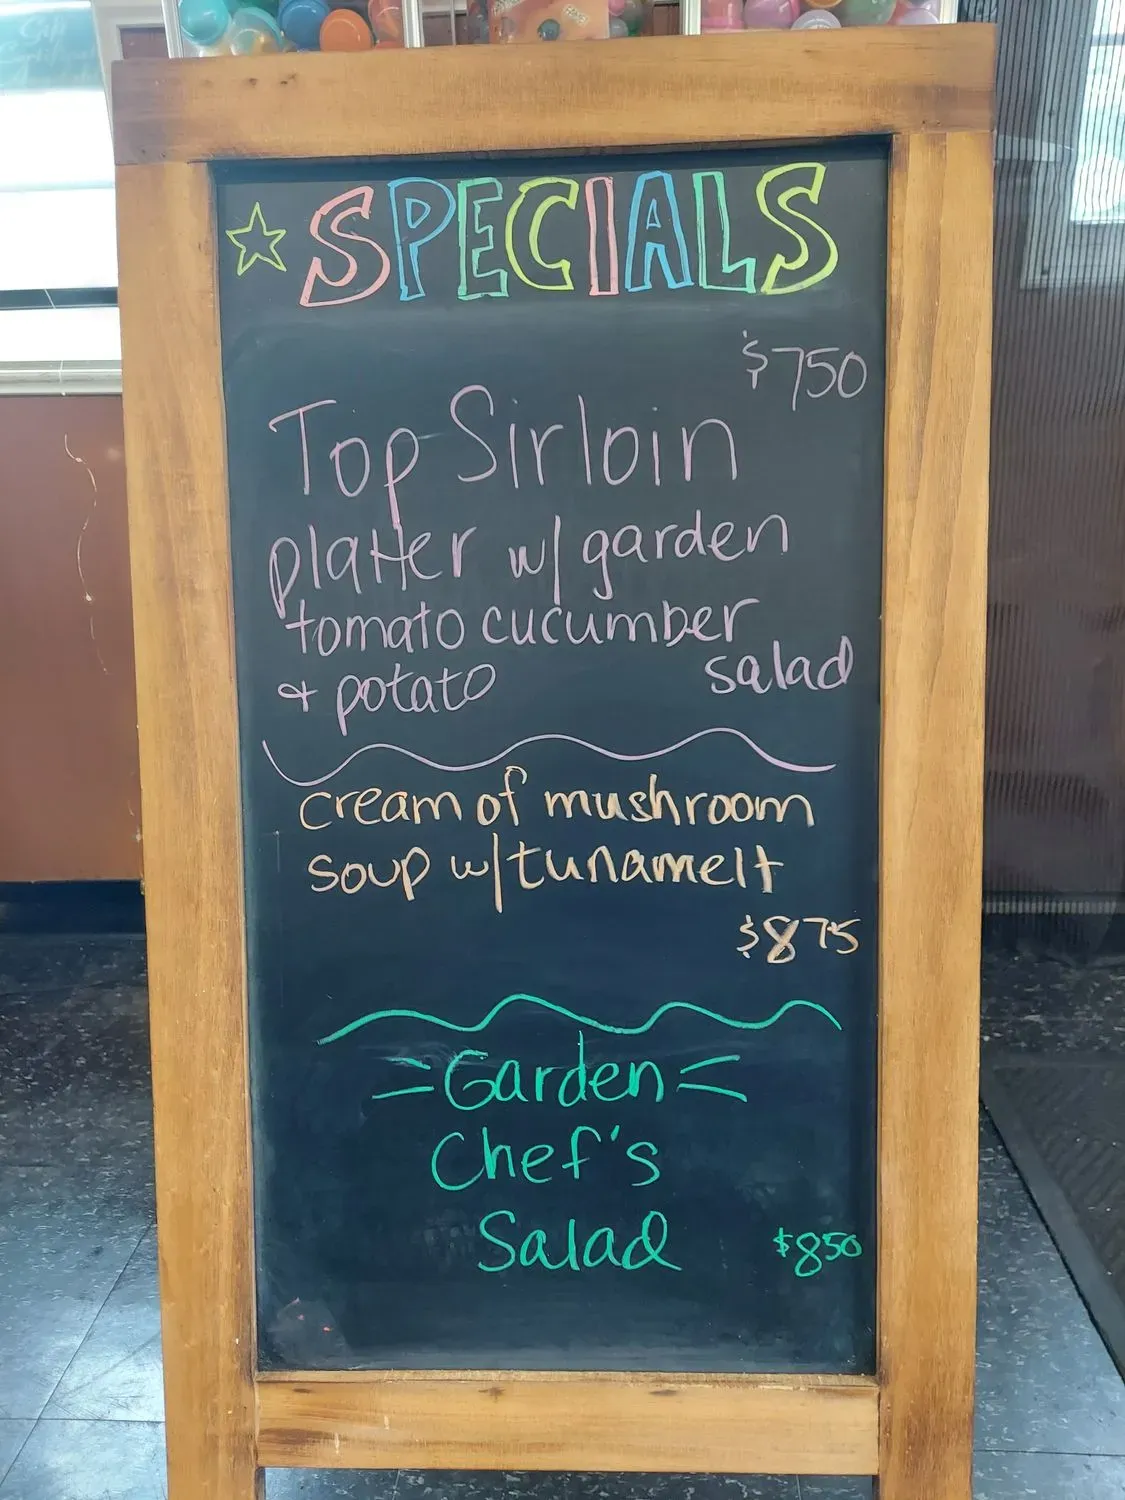 SPECIALS
$750
Top Sirloin
platter w/ garden
tomato cucumber
salad
& potato
cream of mushroom
soup w/ tunamelt
$875
Garden
Chef's
Salad $850